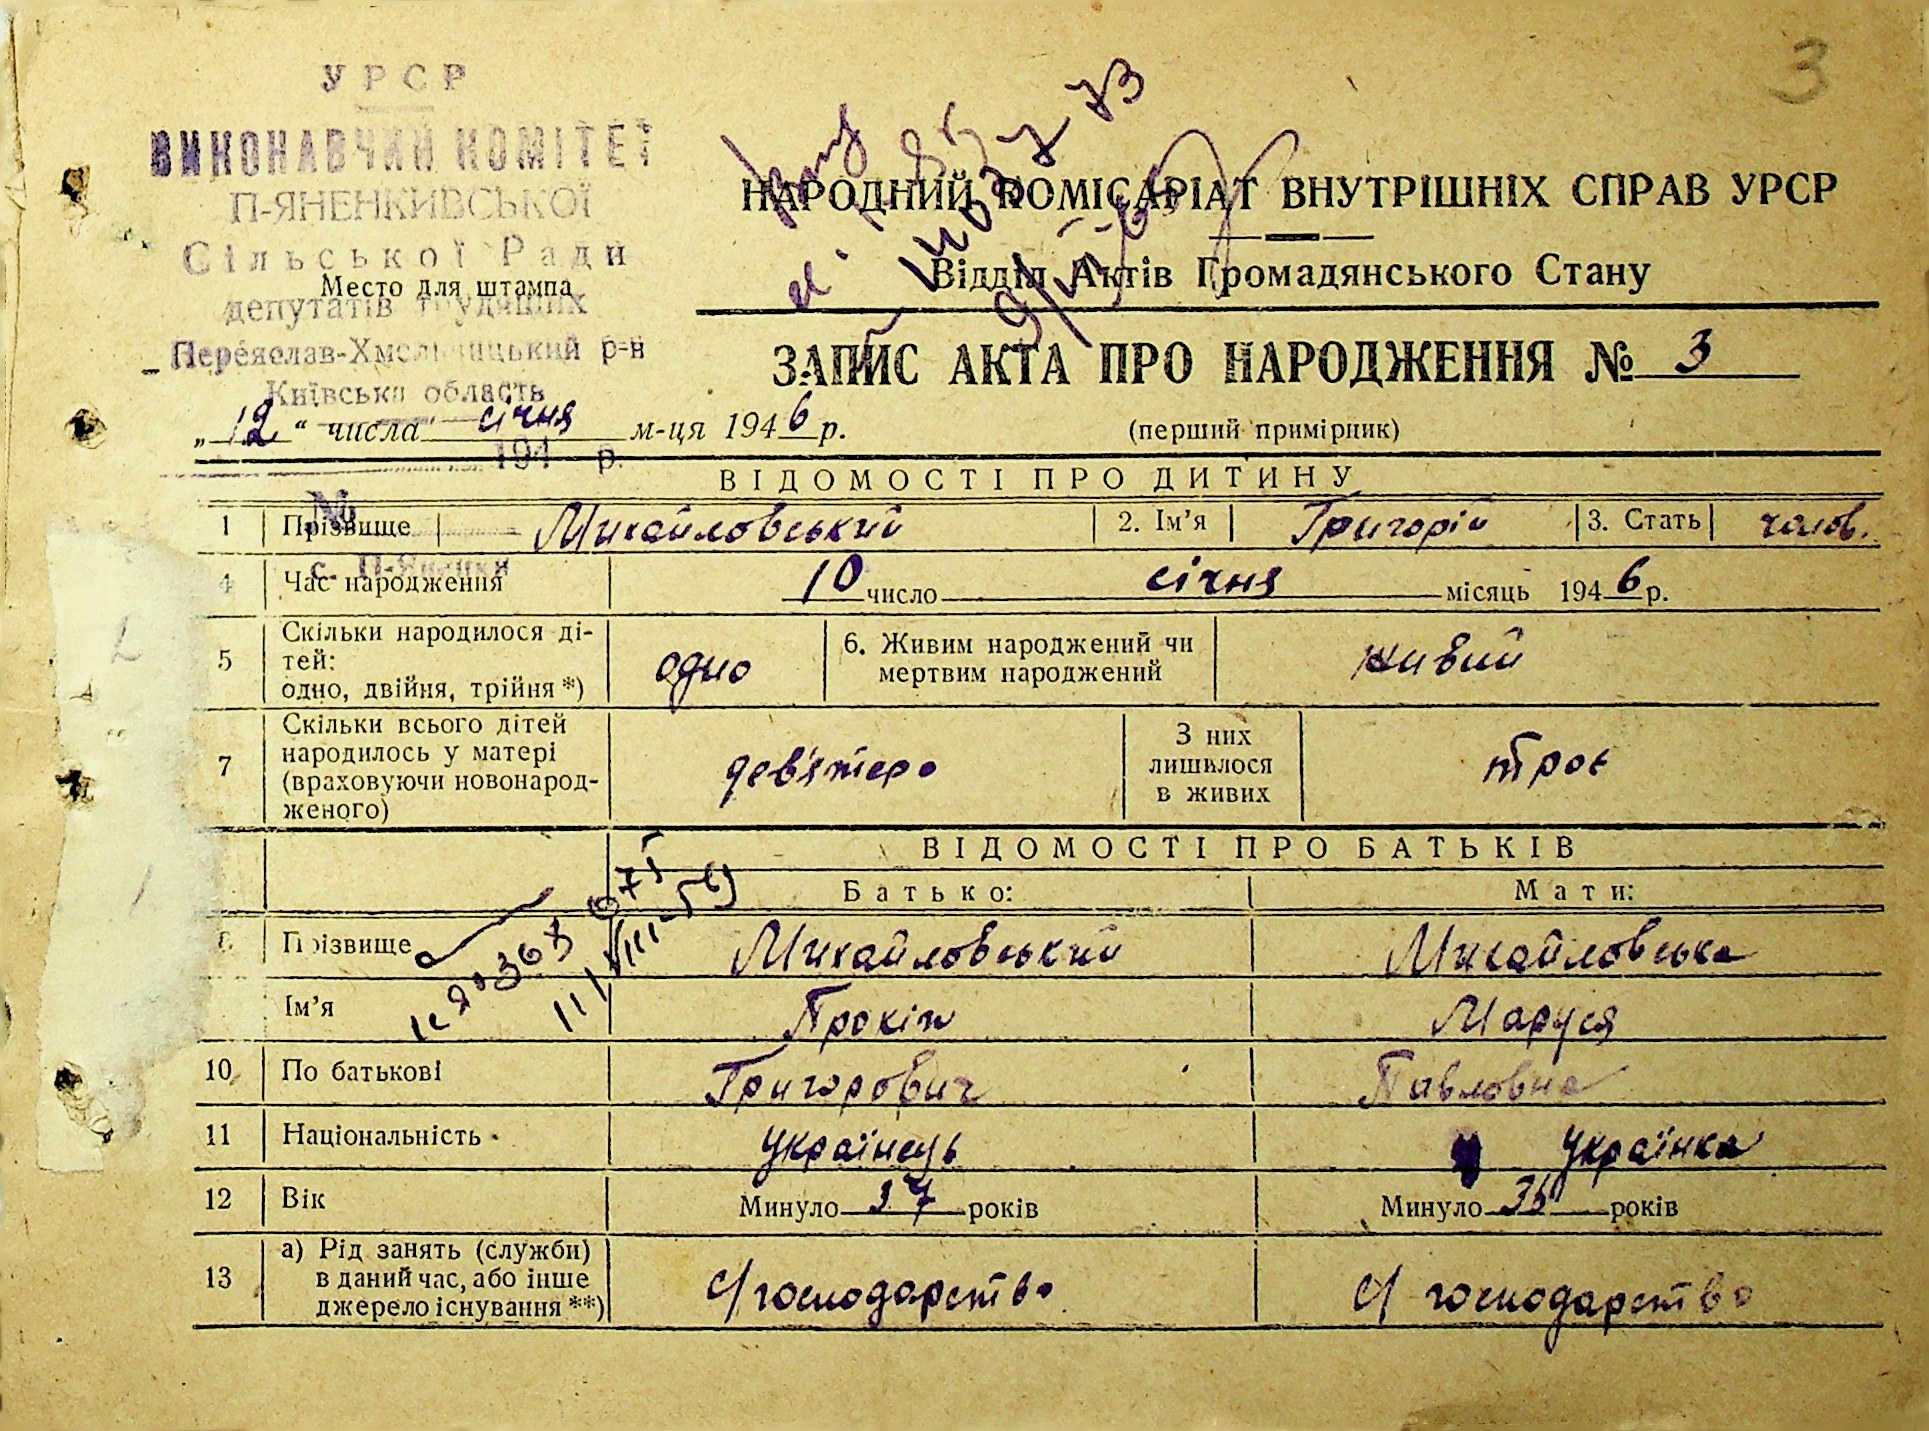 3
УРСР
ВИКОНАВЧИЙ КОМІТЕТ
П-ЯНЕНКИВСЬКОЇ
Сільської Ради
Место для штампа
депутатів трудящих
Переяслав-Хмельницький р-н
Київська область
194 р.
№
НАРОДНИЙ КОМІСАРІАТ ВНУТРІШНІХ СПРАВ УРСР
Відділ Актів Громадянського Стану
ЗАПИС АКТА ПРО НАРОДЖЕННЯ № 3
„12“ числа січня м-ця 1946 р.
(перший примірник)
ВІДОМОСТІ ПРО ДИТИНУ
1 Прізвище Михайловський 2. Ім’я Григорій 3. Стать чолов.
4 Час народження 10 число січня місяць 1946 р.
5 Скільки народилося ді-
тей:
одно, двійня, трійня *) одно 6. Живим народжений чи
мертвим народжений живий
7 Скільки всього дітей
народилось у матері
(враховуючи новонарод-
женого) дев'ятеро З них
лишилося
в живих троє
ВІДОМОСТІ ПРО БАТЬКІВ
Батько: Мати:
8 Прізвище Михайловський Михайловська
Ім’я Прокіп Маруся
10 По батькові Григорович Павловна
11 Національність українець українка
12 Вік Минуло 37 років Минуло 35 років
13 а) Рід занять (служби)
в даний час, або інше
джерело існування **) с/господарство с/господарство